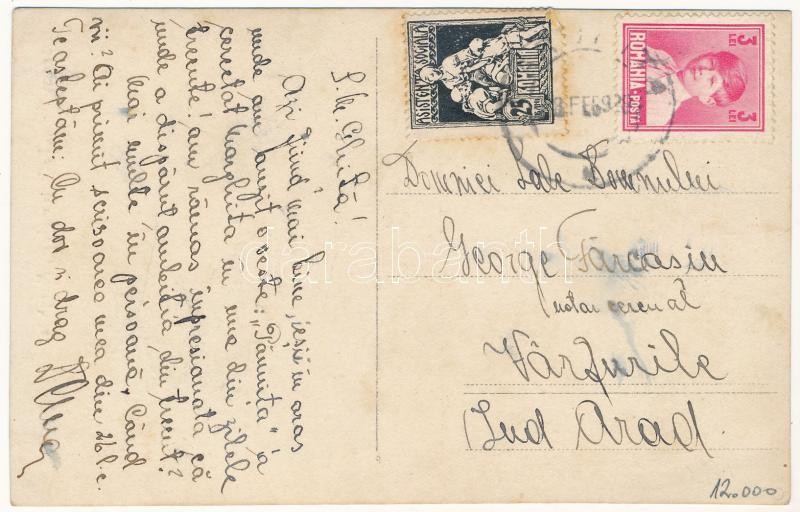 S. M. Ghiță!
Azi fiind mai bine, ieșii în oraș
unde am auzit o veste: "Pămnița" a
cercetat Marghita în una din zilele
trecute! am rămas impresionată că
unde a dispărut ambiția din trecut?
Mai multe în persoană, Când
vii? Ai primit scrisoarea mea din 26 l. c.
Te aștept în: Cu dor și drag
ASISTENȚA SOCIALA
ROMANIA
25
3
LEI
ROMANIA-POSTA
3
LEI
FEB 92
Domniei Sale Domnului
George Fărcașiu
notar cercual
Vârfurile
Jud Arad
12.000
darabanth.com